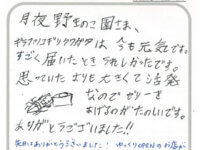 月夜野きのこ園さま、
ギラファノコギリクワガタは 今も元気です。
すごく 届いたとき うれしかったです。
思っていたよりも大きくて活発
なのでゼリーを
あげるのがたのしいです。
ありがとうございました!!